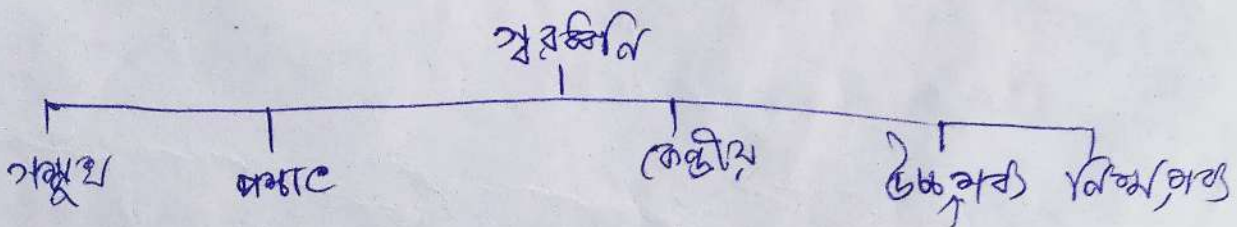 স্বরধ্বনি
সম্মুখ পশ্চাৎ কেন্দ্রীয় উচ্চমধ্য নিম্নমধ্য